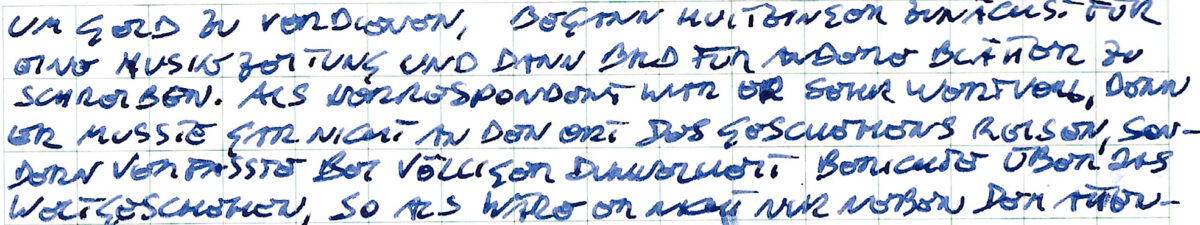 UM GELD ZU VERDIENEN, BEGANN HULTZINGER ZUNÄCHST FÜR
EINE MUSIKZEITUNG UND DANN BALD FÜR ANDERE BLÄTTER ZU
SCHREIBEN. ALS KORRESPONDENT WAR ER SEHR WERTVOLL, DENN
ER MUSSTE GAR NICHT AN DEN ORT DES GESCHEHENS REISEN, SON-
DERN VERFASSTE BEI VÖLLIGER DUNKELHEIT BERICHTE ÜBER DAS
WELTGESCHEHEN, SO ALS WÄRE ER NICHT NUR NEBEN DEM ATTEN-